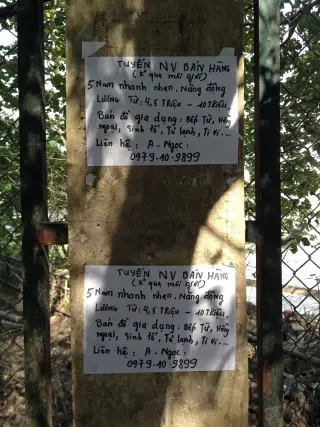 TUYỂN NV BÁN HÀNG
(K° qua môi giới)
5 Nam nhanh nhẹn, Năng động
LƯƠNG TỪ: 4,5 TRIỆU - 10 TRIỆU.
Bán đồ gia dụng: Bếp Từ, Hồng
ngoại, Sinh tố, Tủ lạnh, Ti Vi...
Liên hệ: A - Ngọc:
0979.10.9899
TUYỂN NV BÁN HÀNG
(K° qua môi giới)
5 Nam nhanh nhẹn, Năng động
LƯƠNG TỪ: 4,5 TRIỆU - 10 TRIỆU.
Bán đồ gia dụng: Bếp Từ, Hồng
ngoại, Sinh tố, Tủ lạnh, Ti Vi...
Liên hệ: A - Ngọc:
0979.10.9899